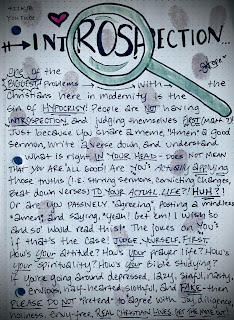 YouTube
INTROSPECTION...
One of the
BIGGEST Problems with the
Christians here in modernity is the
sin of HYPOCRISY! People are NOT having
INTROSPECTION and judging themselves FIRST (Matt. 7)!
Just because you share a meme, "Amen" a good
Sermon, write a verse down, and understand
What is right IN YOUR HEAD - DOES NOT MEAN
THAT YOU ARE ALL GOOD! Are YOU ACTUALLY applying
those truths (i.e. stirring sermons, convicting changes,
Beat down verses) TO YOUR ACTUAL LIFE?! HUH?!
Or are you PASSIVELY "agreeing", posting a mindless
amen, and saying, "yeah! Get em! I wish so
and so would read this"! The Jokes on You
if that's the Case! JUDGE YOURSELF FIRST.
How's YOUR attitude? How's YOUR prayer life? How's
YOUR spirituality? How's YOUR Bible Studying?
If you're going around depressed, lazy, sinful, nasty,
envious, half-hearted, slothful, and FAKE - then
PLEASE DO NOT "pretend" to agree with Joy, diligence,
Holiness, Envy-free, REAL CHRISTIAN LIVES. GET THE MOTE OUT!